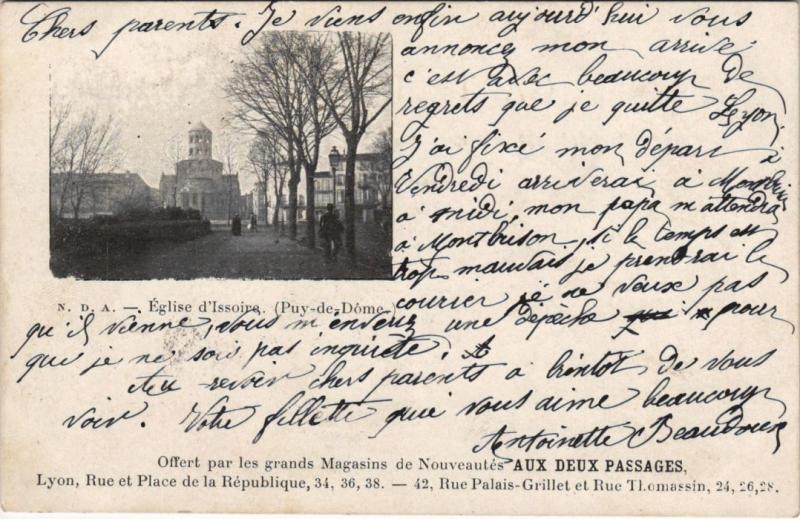 Chers parents. Je viens enfin aujourd'hui vous
annoncez mon arrivé
c'est avec beaucoup de
regrets que je quitte Lyon,
J'ai fixé mon départ à
Vendredi arriverai à Montbrison
à midi, mon papa m'attendra
à Montbrison, si le temps est
trop mauvais je prendrai le
courrier je ne veux pas
qu'il vienne, vous m'enverez une dépeche pour
que je ne sois pas inquiete,
Au revoir chers parents a bientot de vous
voir. Votre fillette qui vous aime beaucoup
Antoinette
N. D. A. — Église d'Issoire. (Puy-de-Dôme
Offert par les grands Magasins de Nouveautés AUX DEUX PASSAGES,
Lyon, Rue et Place de la République, 34, 36, 38. — 42, Rue Palais-Grillet et Rue Thomassin, 24, 26, 28.